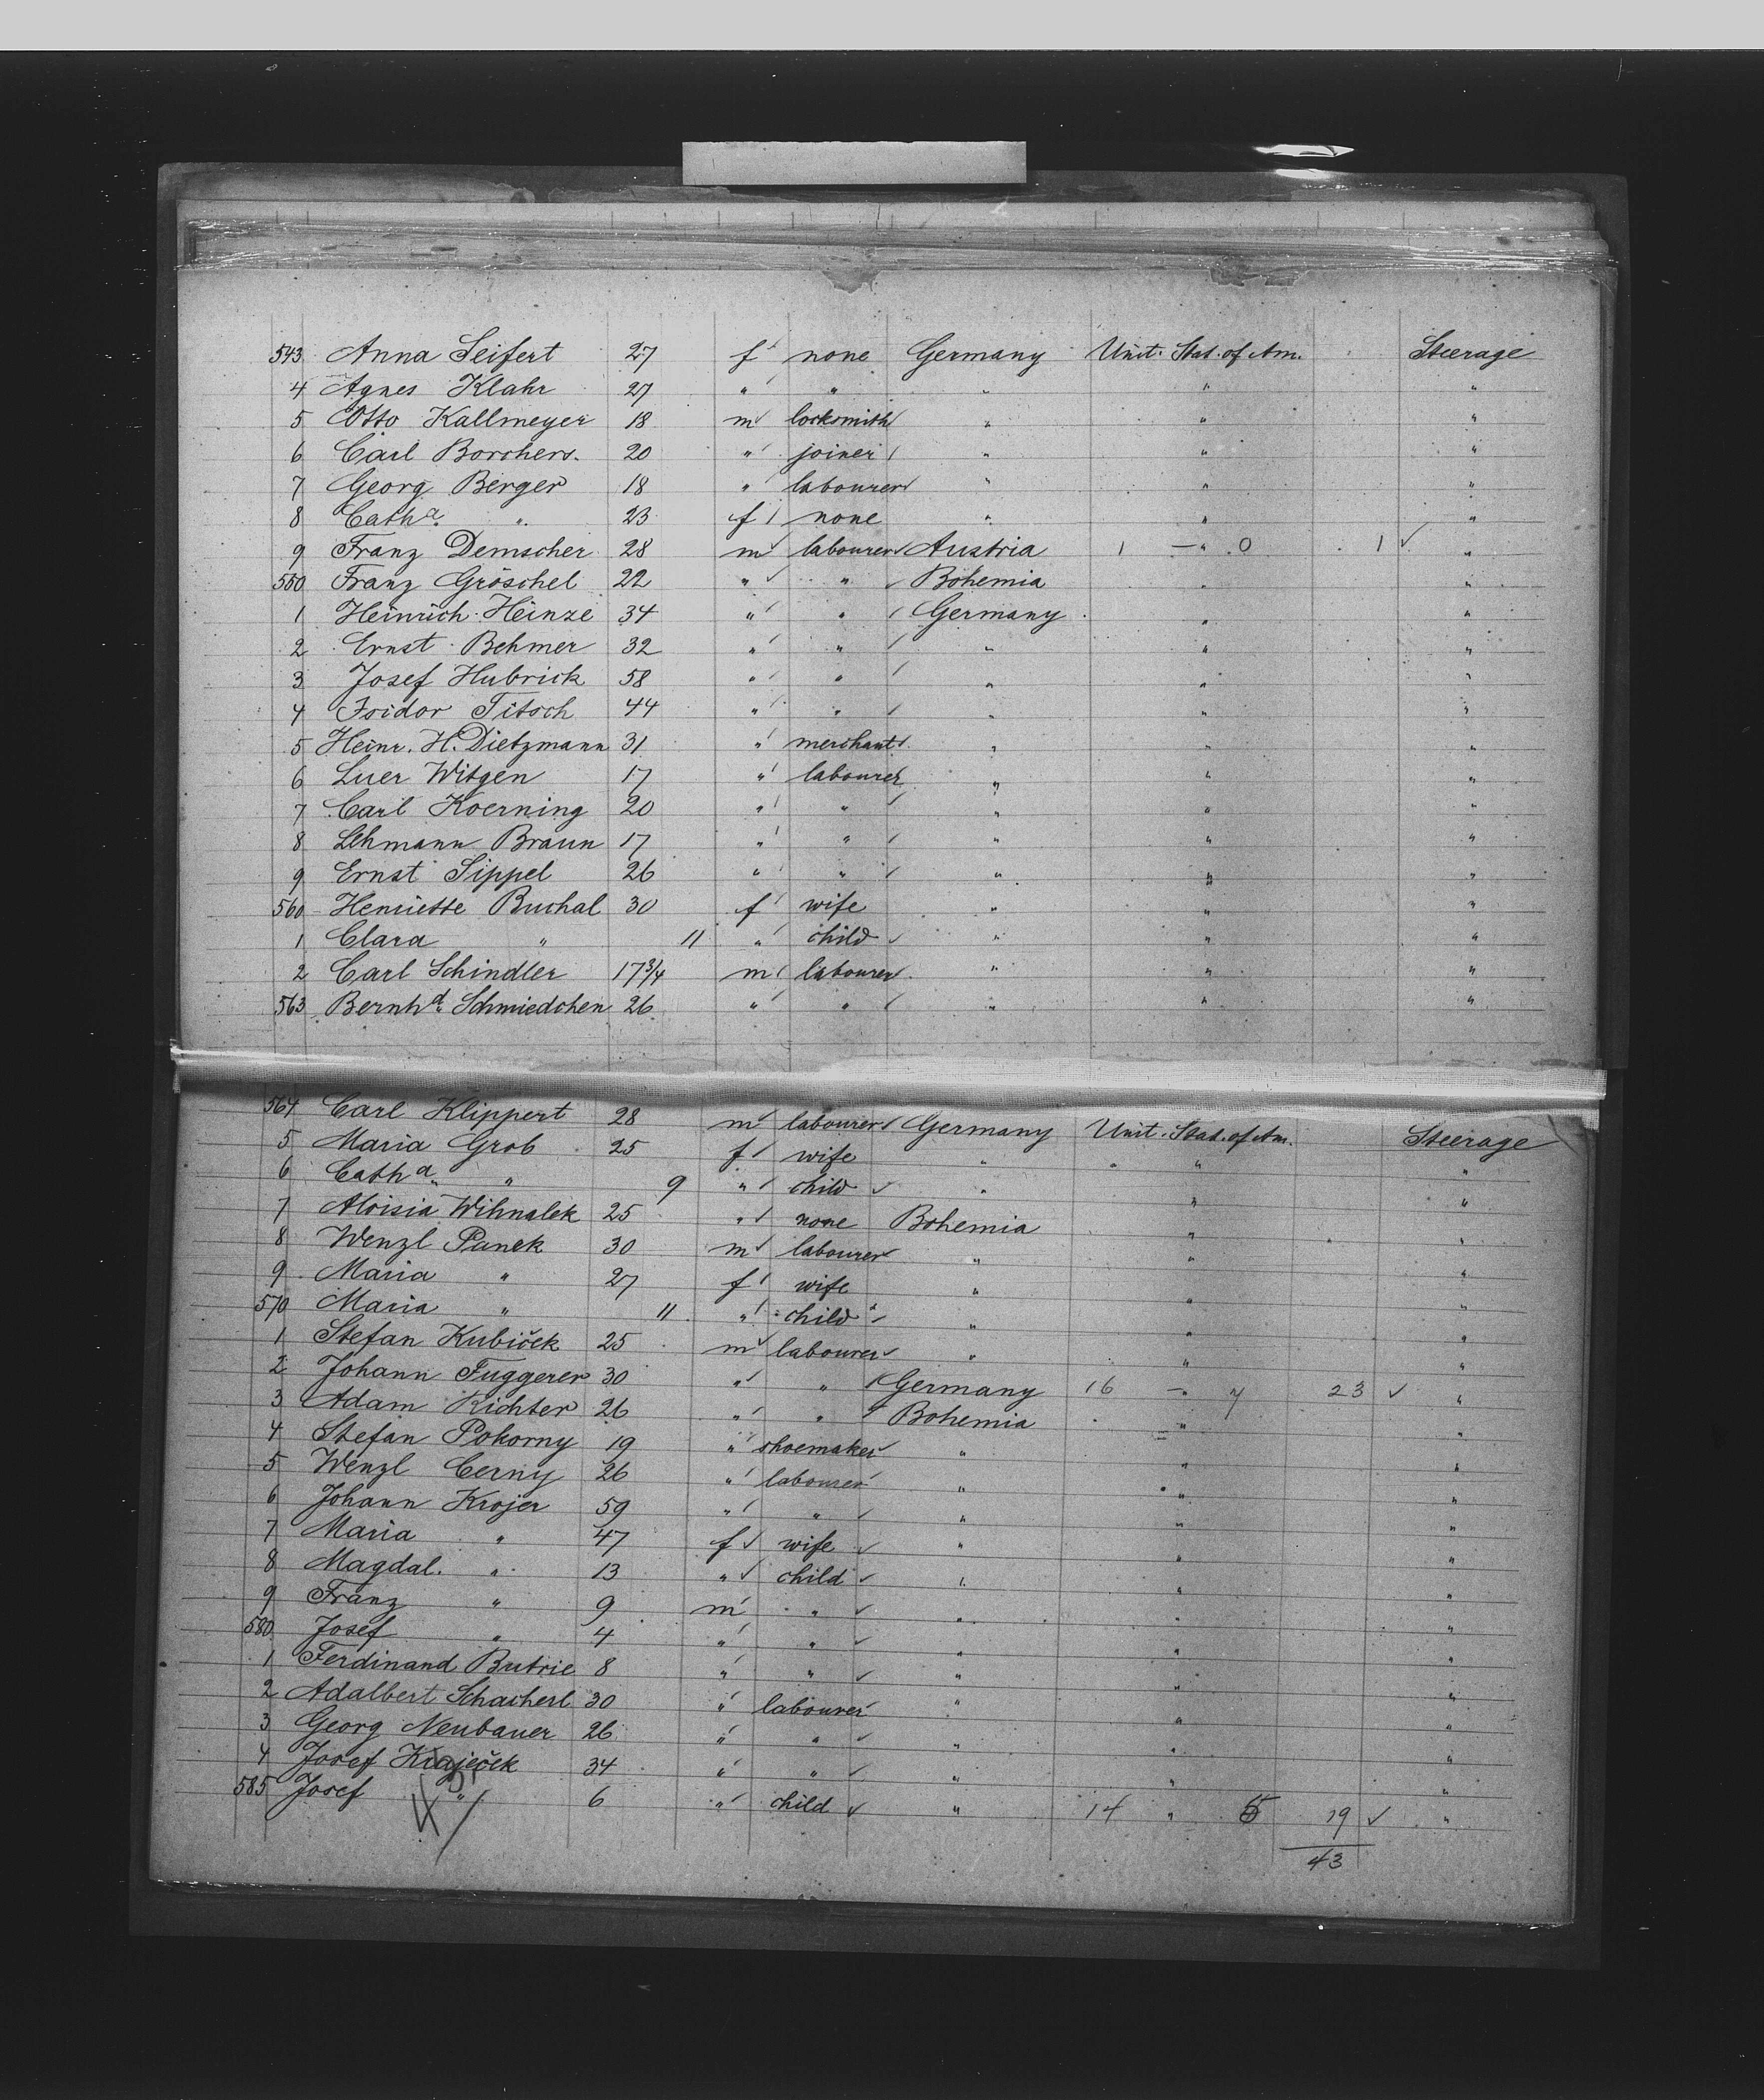 543 Anna Seifert 27 f none Germany Unit. Stat. of Am. Steerage
4 Agnes Klahr 27 " " " " "
5 Otto Kallmeyer 18 m locksmith " " "
6 Carl Borchers. 20 " joiner " " "
7 Georg Berger 18 " labourer " " "
8 Catha. " 23 f none " " "
9 Franz Demscher 28 m labourer Austria 1 — " 0 1 ✓ "
550 Franz Gröschel 22 " " Bohemia " "
1 Heinrich Heinze 34 " " Germany " "
2 Ernst Behmer 32 " " " " "
3 Josef Hubrick 58 " " " " "
4 Isidor Titsch 44 " " " " "
5 Heinr. H. Dietzmann 31 " merchant " " "
6 Luer Witgen 17 " labourer " " "
7 Carl Koerning 20 " " " " "
8 Lehmann Braun 17 " " " " "
9 Ernst Sippel 26 " " " " "
560 Henriette Buchal 30 f wife " " "
1 Clara " 11 " child " " "
2 Carl Schindler 17 3/4 m labourer " " "
563 Bernhd. Schmiedchen 26 " " " " "
564 Carl Klippert 28 m labourer Germany Unit. Stat. of Am. Steerage
5 Maria Grob 25 f wife " " "
6 Catha. " 9 " child " " "
7 Aloisia Wihnalek 25 " none Bohemia " "
8 Wenzl Panek 30 m labourer " " "
9 Maria " 27 f wife " " "
570 Maria " 11 " child " " "
1 Stefan Kubiček 25 m labourer " " "
2 Johann Fuggerer 30 " " Germany 16 — " 7 23 ✓ "
3 Adam Richter 26 " " Bohemia " "
4 Stefan Pokorny 19 " shoemaker " " "
5 Wenzl Cerny 26 " labourer " " "
6 Johann Krojer 59 " " " " "
7 Maria " 47 f wife " " "
8 Magdal. " 13 " child " " "
9 Franz " 9 m " " " "
580 Josef " 4 " " " " "
1 Ferdinand Butrie 8 " " " " "
2 Adalbert Schacherl 30 " labourer " " "
3 Georg Neubauer 26 " " " " "
4 Josef Kraječek 34 " " " " "
585 Josef " 6 " child " 14 " 5 19 ✓ "
43